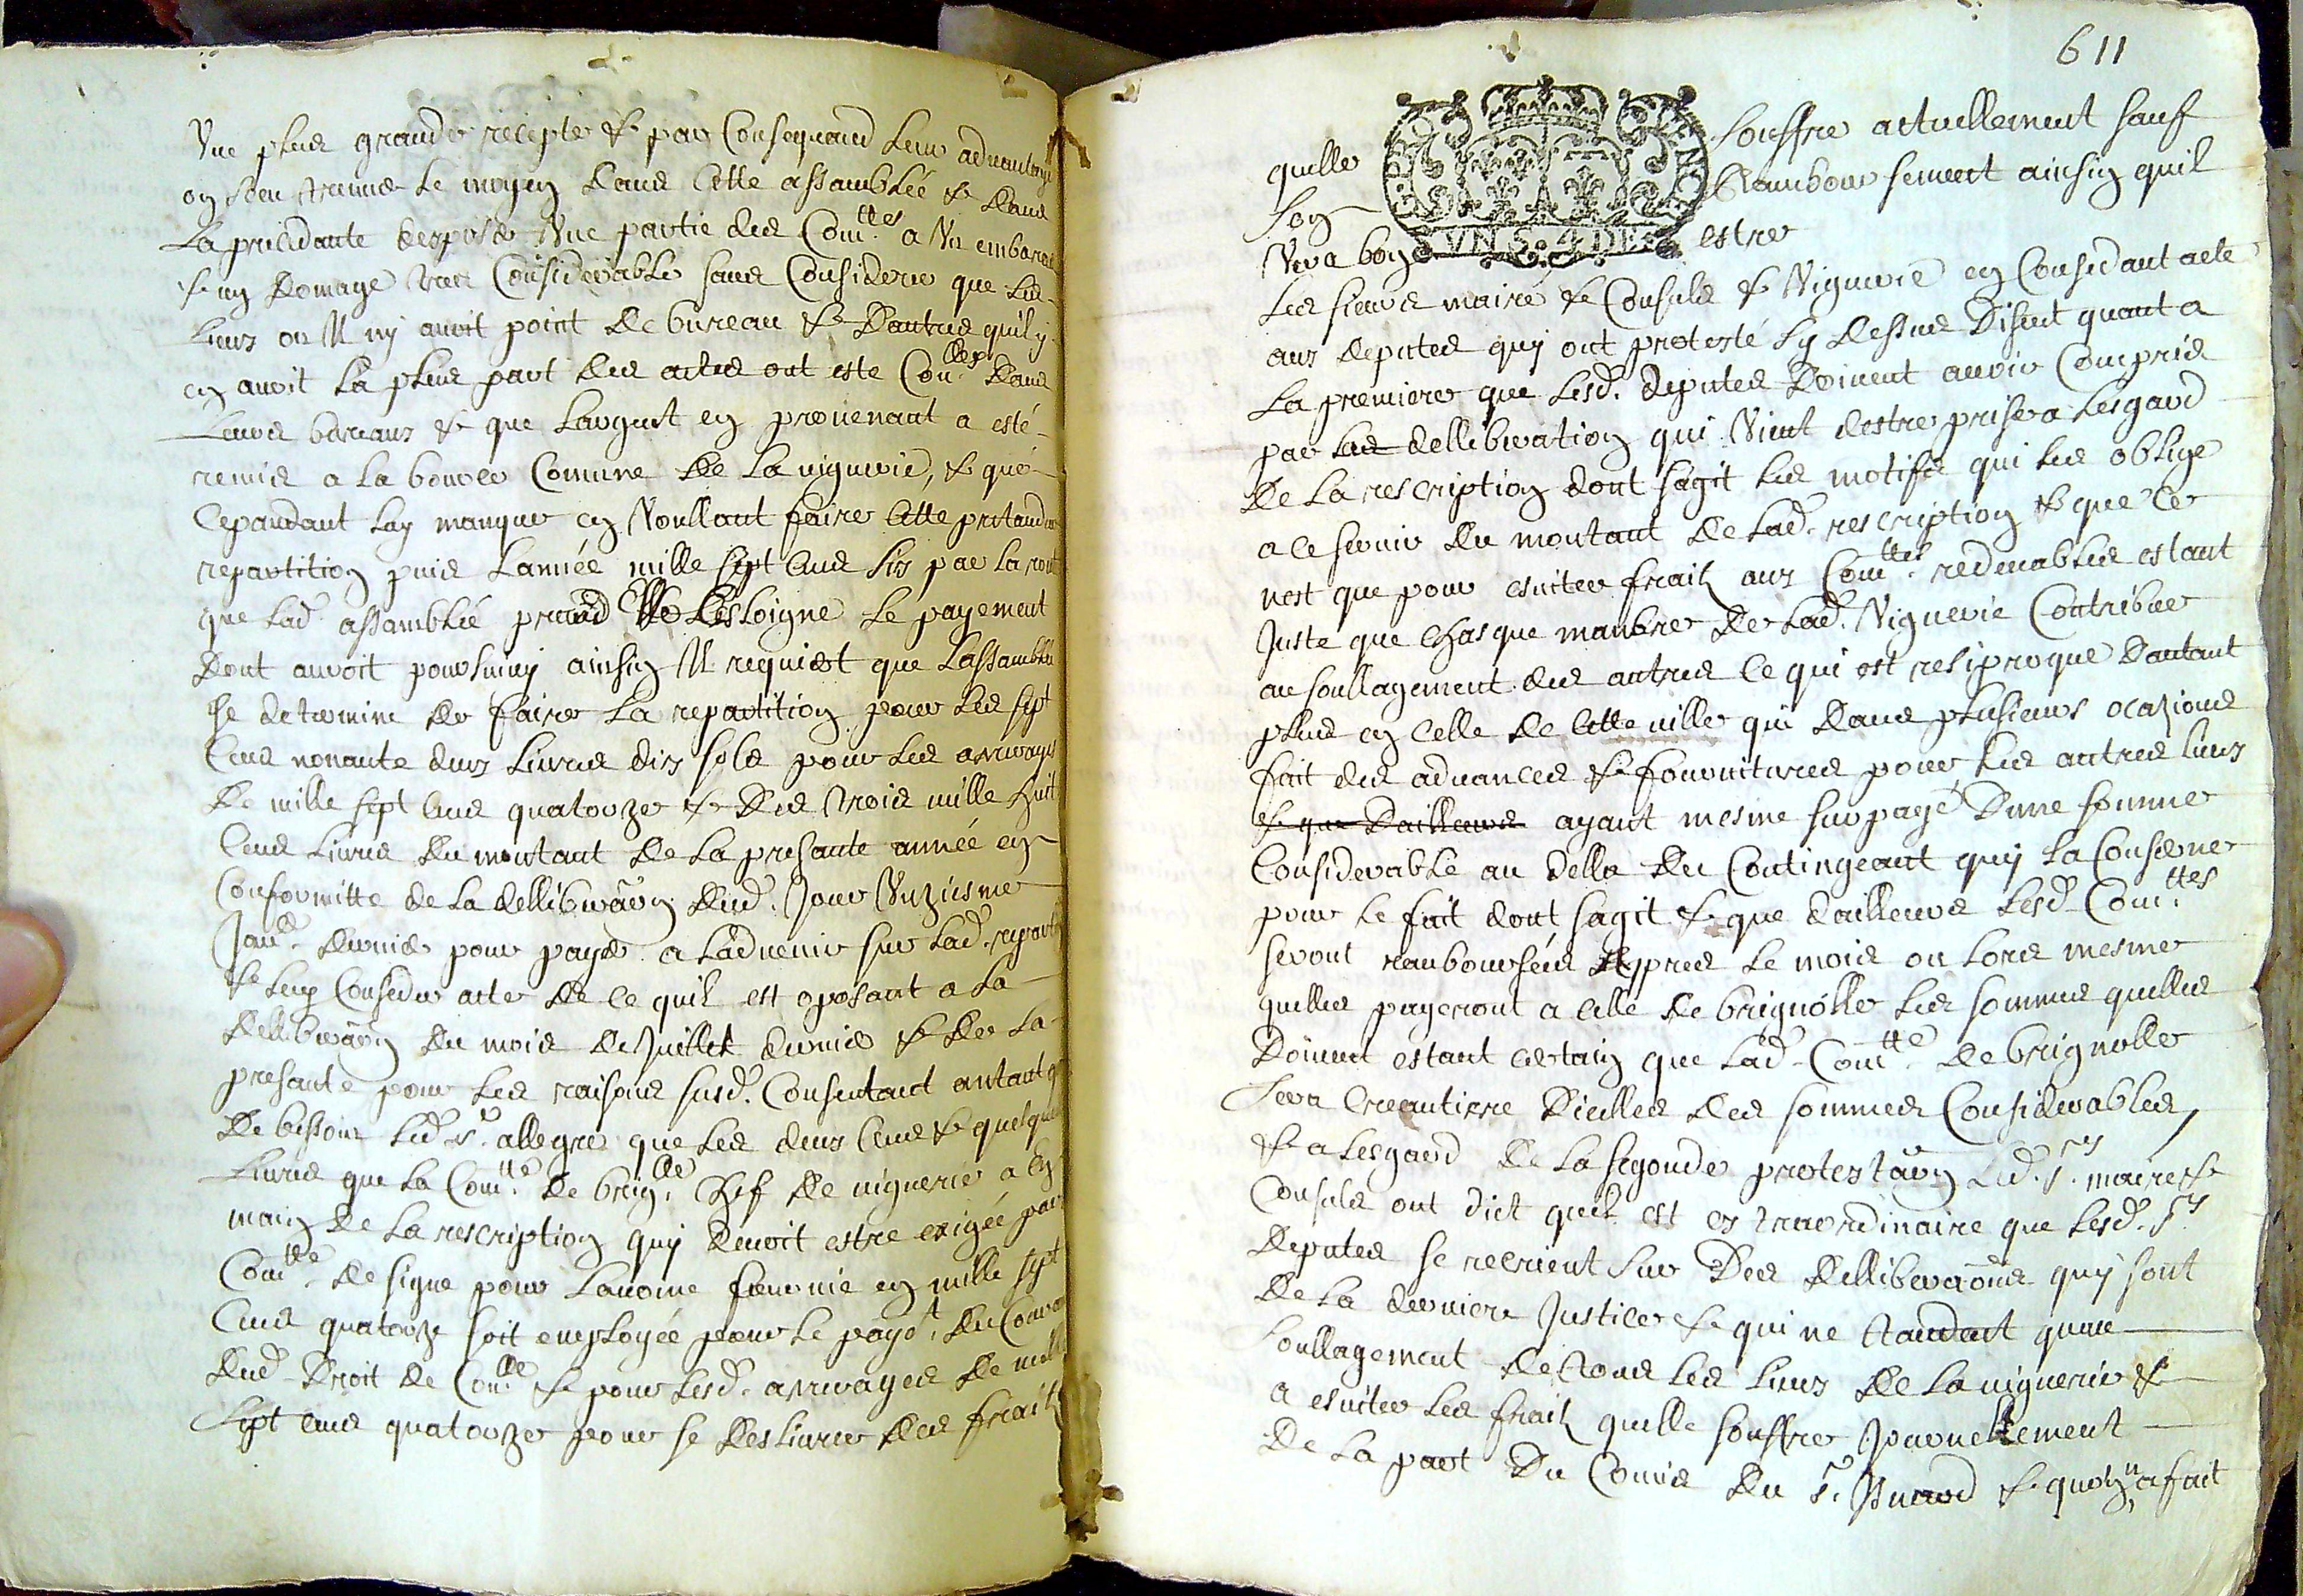 Une plus grande recepte & par Consequand leur advantage
on s'en trouve le moyen dans cette assamblée & dans
La precedante dexposer Une partie des Com.ttes a Un embaras
& un domage tres Considerable sans Considerer que les
lieux ou Il ny avoit point de bureau & dautres quil y
en avoit la plus part des actes ont este Con.llés dans
Leurs bureaux & que Largent en provenant a esté
remis a la bource Comune de la viguerie, & que
Cepandant luy manque en Voullant faire cette pretandue
repartition puis Lannée mille sept cens six par la rout
que lad. assamblée prand Elle Esloigne le payement
dont auroit poursuivy ainsin Il requiert que Lassamblée
se determine de faire la repartition pour les sept
Cens nonante deux Livres dix sols pour les arrerages
de mille sept cens quatorze & des trois mille huit
Cens Livres du montant de la presante année en
Conformitte de la dellibera.on dud. Jour Unziesme
Janv.er dernier pour payer a Ladvenir sur lad. reparti.on
& luy Conseder acte de ce quil est oposant a la
dellibera.on du mois de Juillet dernier & de la
presante pour les raisons susd. Consentant autant q
de bessoin led. s.r allegre que les deux Cens & quelques
Livres que la Com.tté de brig.lle Chef de viguerie a En
main de la rescription quy devoit estre exigée par
Com.tté de signe pour Lavoine fournie en mille sept
Cens quatorze soit employée pour le paye.t du Cour
dud. Droit de Con.lle & pour lesd. arrerages de mille
Sept cens quatorze pour se deslivrer des fraix
611
quelle souffre actuellement sauf
Son Rambourcement ainsin quil
Verra bon estre
UN S. 4 DE
Les sieurs maire & Consuls & Viguerie en Consedant acte
aux deputes quy ont protesté sy dessus Disent quant a
La premiere que lesd. deputes Doivent avoir Compris
par las dellibération qui Vient destre prise a Lesgard
de la rescription dont sagit les motifs qui les oblige
a ce servir du montant de lad. rescription & que ce
nest que pour esviter fraix aux Com.ttes redevables estant
Juste que chasque manbre de lad. Viguerie Contribue
au soullagement des autres ce qui est resiproque dautant
plus en celle de cette ville qui dans plusieurs ocazions
fait des advances & fournitures pour les autres lieux
& que Dailleurs ayant mesme surpayé Dune somme
Considerable au della du Contingeant quy la Conserne
pour le fait dont sagit & que dailleurs lesd. Com.ttes
seront rambourcées apres le mois ou lors mesme
quelles payeront a celle de brignolle les sommes quelles
Doivent estant certain que lad. Com.tté de brignolle
sera creantiere Dicelles des sommes Considerables,
& a Lesgard de la segonde protesta.on led. s.rs maire &
Consuls ont dict quil est extraordinaire que lesd. s.rs
deputes se recrient sur Des Dellibera.ons quy sont
de la derniere Justice & qui ne tandent quau
soullagement de tous les lieux de la viguerie &
a esviter les fraix quelle souffre Journellement
de la part du Comis du s.r Isnard & quoy n a fait